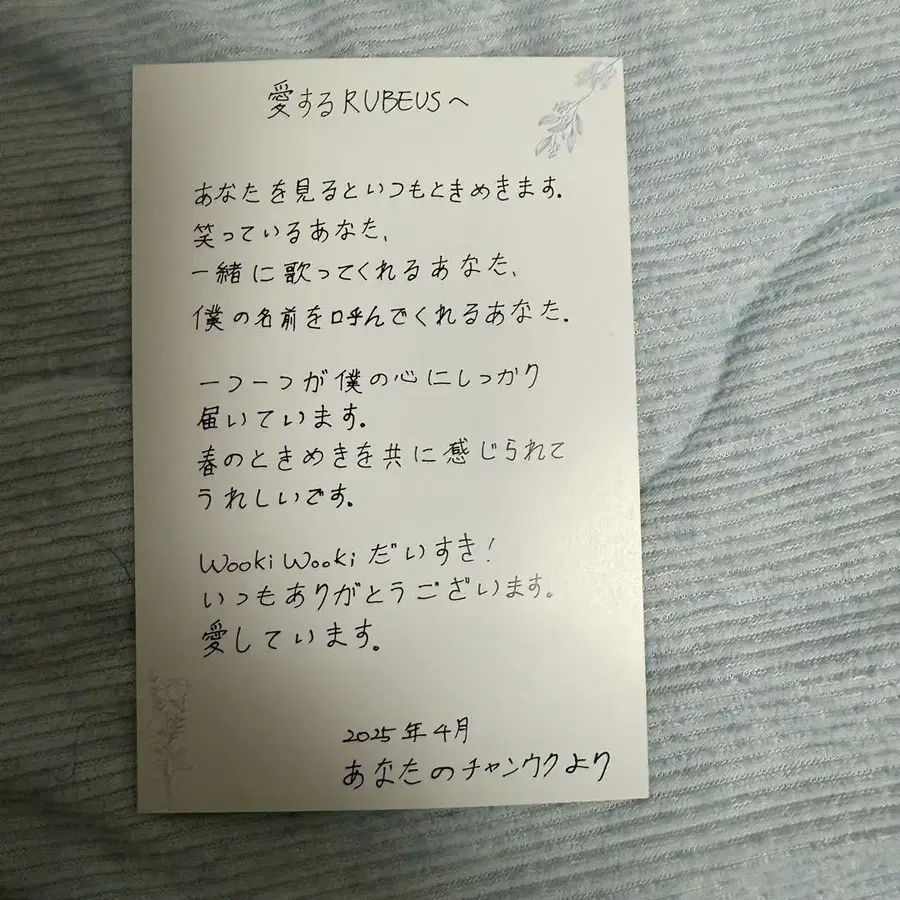 愛するRUBEUSへ
あなたを見るといつもときめきます.
笑っているあなた、
一緒に歌ってくれるあなた、
僕の名前を呼んでくれるあなた.
一つ一つが僕の心にしっかり
届いています。
春のときめきを共に感じられて
うれしいです。
Wooki Wooki だいすき!
いつもありがとうございます。
愛しています。
2025年4月
あなたのチャンウクより